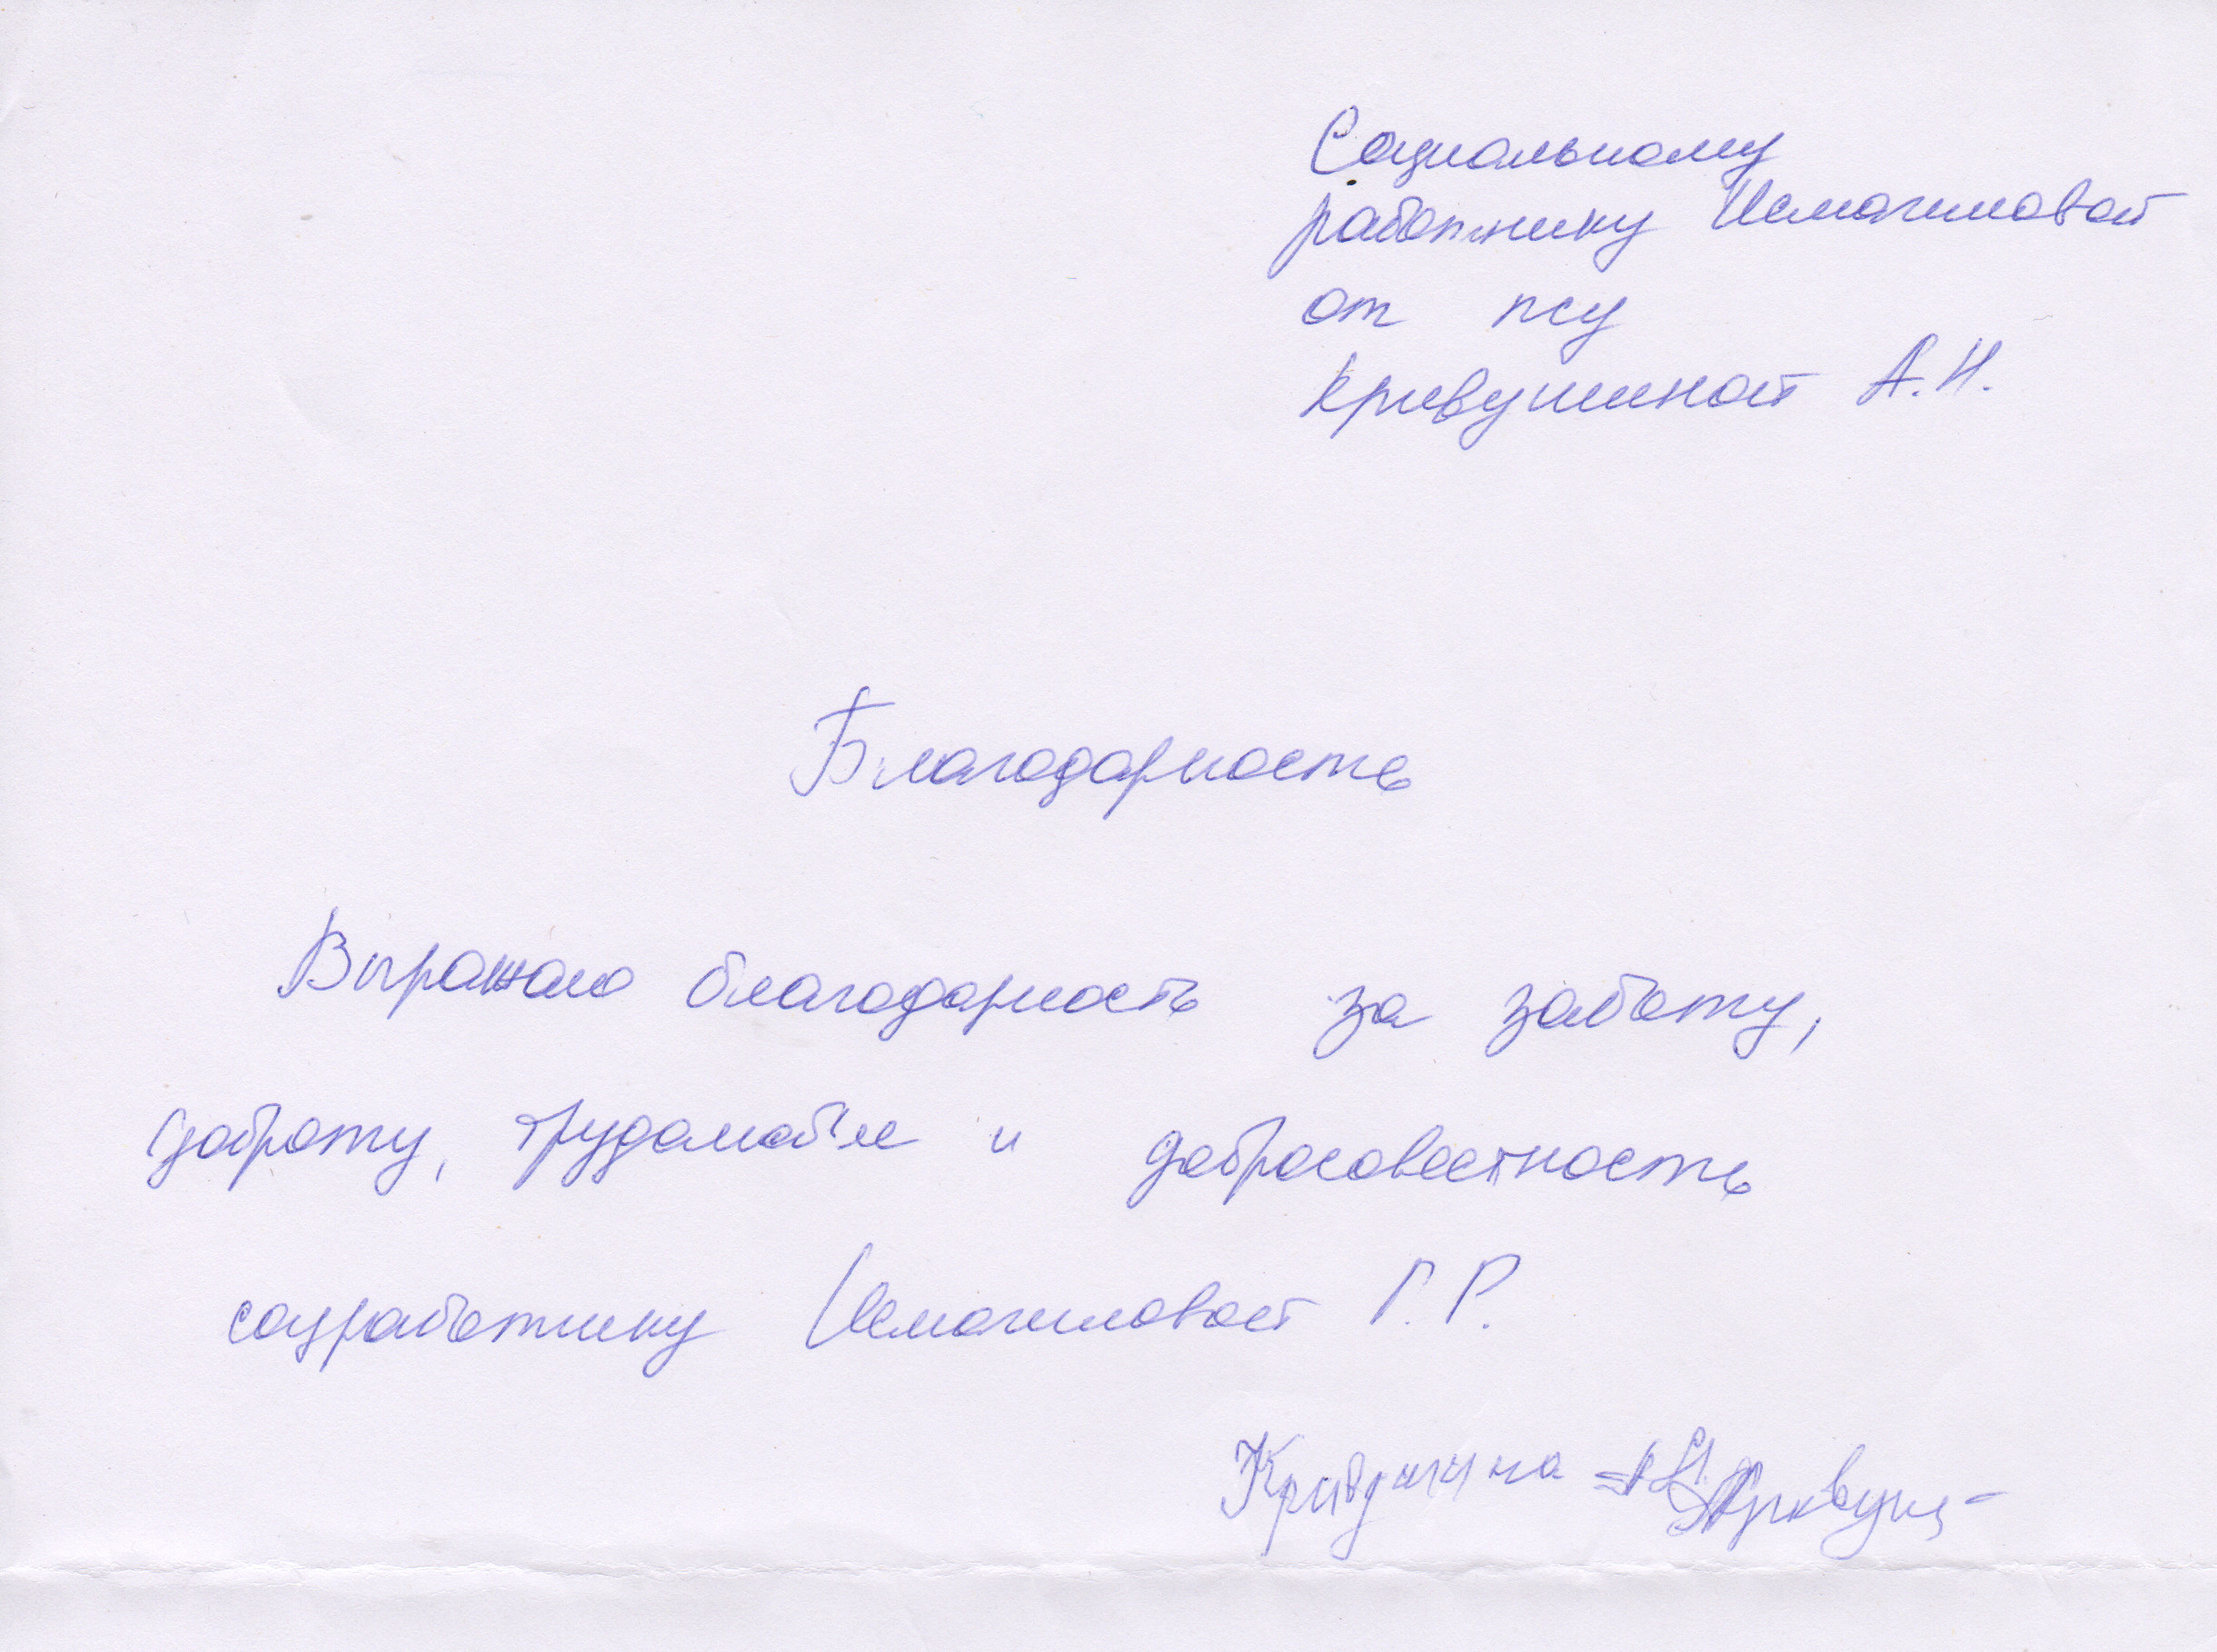 Социальному
работнику Исмагиловой
от псу
Кривушиной А.Н.
Благодарность
Выражаю благодарность за заботу,
доброту, трудолюбие и добросовестность
соцработнику Исмагиловой Г.Р.
Кривушина